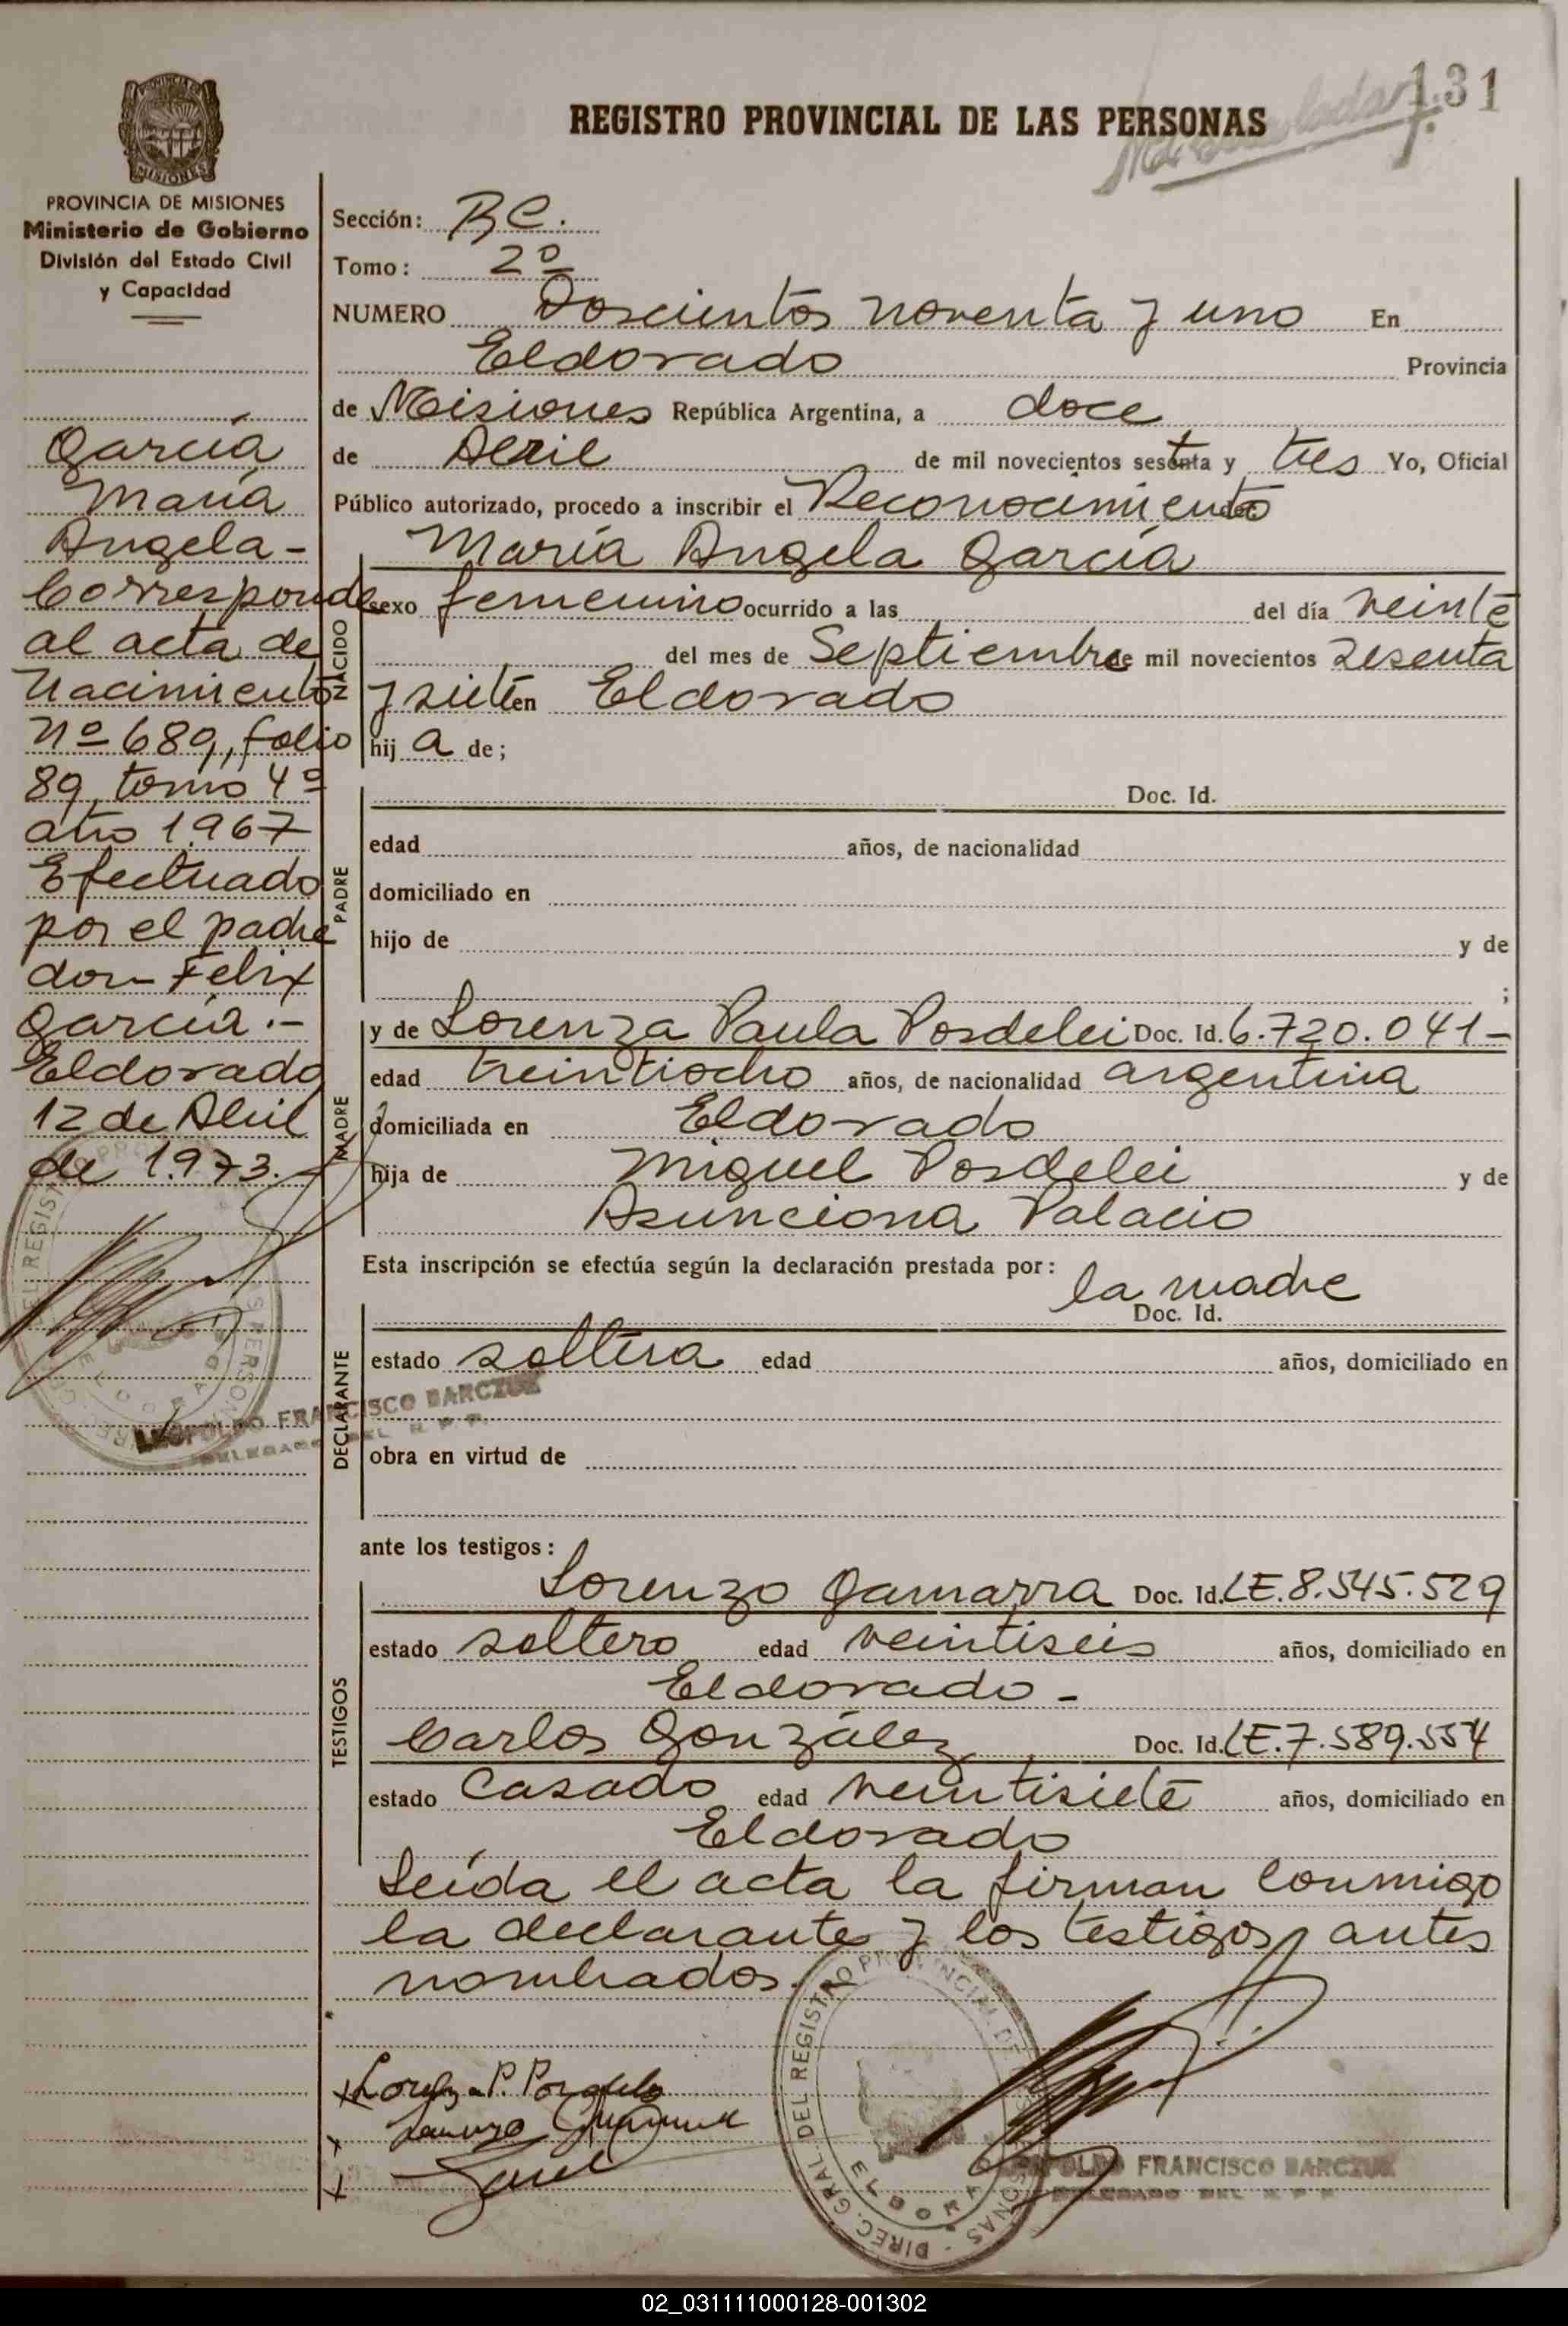 131
REGISTRO PROVINCIAL DE LAS PERSONAS
PROVINCIA DE MISIONES
Ministerio de Gobierno
División del Estado Civil
y Capacidad
García
María
Angela-
Corresponde
al acta de
Nacimiento
Nº 689, folio
89, tomo 4º
año 1.967
Efectuado
por el padre
don Felix
García.-
Eldorado
12 de Abril
de 1.973.
Sección: RC.
Tomo: 2º
NUMERO Doscientos noventa y uno En
Eldorado Provincia
de Misiones República Argentina, a doce
de Abril de mil novecientos setenta y tres Yo, Oficial
Público autorizado, procedo a inscribir el Reconocimiento de
María Angela García
NACIDO
sexo femenino ocurrido a las del día veinte
del mes de Septiembre de mil novecientos sesenta
y siete en Eldorado
hij a de;
PADRE
Doc. Id.
edad años, de nacionalidad
domiciliado en
hijo de y de
;
MADRE
y de Lorenza Paula Posdelei Doc. Id. 6.720.041-
edad treintiocho años, de nacionalidad argentina
domiciliada en Eldorado
hija de Miguel Posdelei y de
Asunciona Palacio
Esta inscripción se efectúa según la declaración prestada por: la madre
DECLARANTE
Doc. Id.
estado soltera edad años, domiciliado en
LEOPOLDO FRANCISCO BARCZUK
DELEGADO DEL R. P. P.
obra en virtud de
ante los testigos:
TESTIGOS
Lorenzo Gamarra Doc. Id. LE.8.545.529
estado soltero edad veintiseis años, domiciliado en
Eldorado-
Carlos González Doc. Id. LE.7.589.554
estado casado edad veintisiete años, domiciliado en
Eldorado
Leída el acta la firman conmigo
la declarante y los testigos antes
nombrados.
DIREC. GRAL. DEL REGISTRO PROVINCIAL DE LAS PERSONAS
ELDORADO
LEOPOLDO FRANCISCO BARCZUK
DELEGADO DEL R. P. P.
02_031111000128-001302